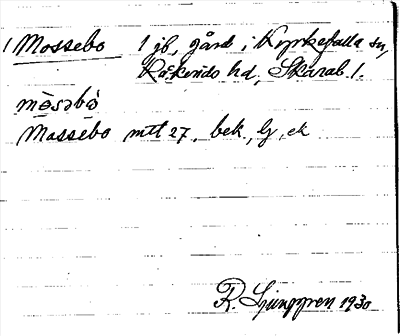 1 Mossebo 1 jb, gård i Kyrkefalla sn,
Kåkinds hd, Skarab. l.
mòsəbò
Massebo mtt 27, bek., lj, ek
R. Ljunggren 1930